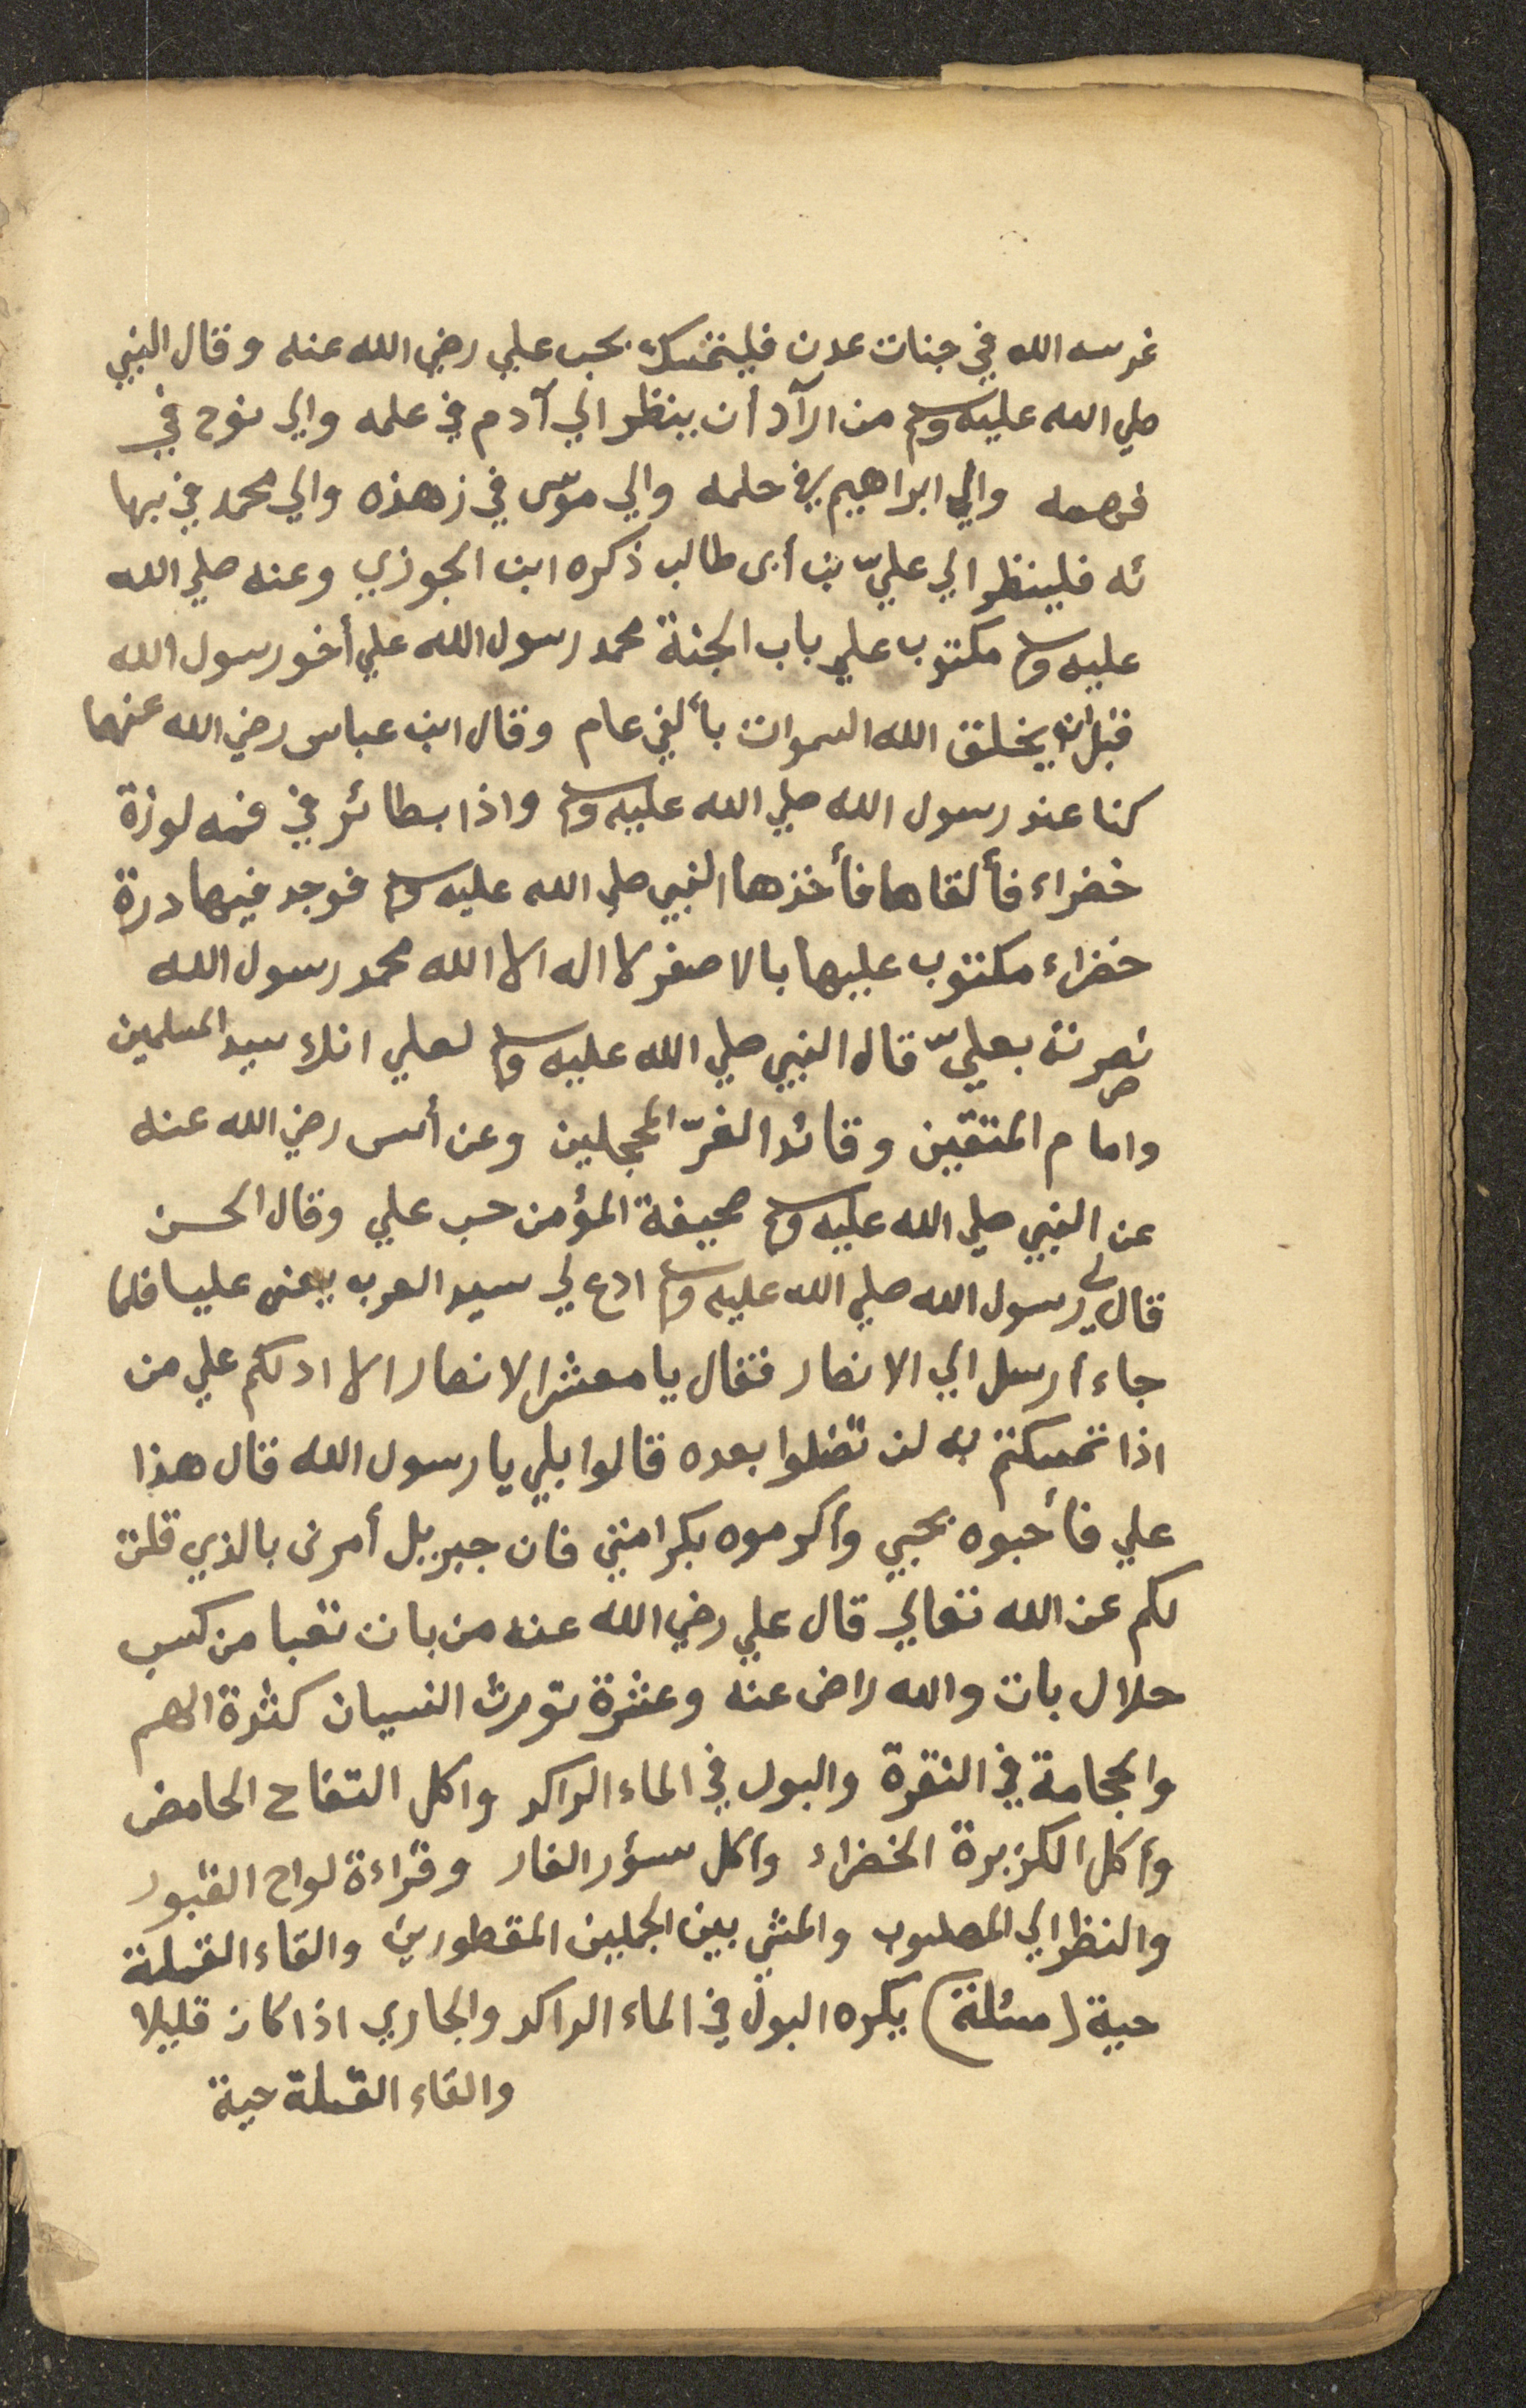 غرسه الله في جنات عدن فليتمسك بحب علي رضي الله عنه وقال النبي
صلي الله عليه وسلم من ارآد أن ينظر الي آدم في علمه والي نوح في
فهمه والي ابراهيم في حلمه والي موسى في زهذه والي محمد في بها
ئه فلينظر الي عليّ بن أبى طالب ذكره ابن الجوزي وعنه صلي الله
عليه وسلم مكتوب علي باب الجنة محمد رسول الله علي أخو رسول الله
قبل ان يخلق الله السموات بألفي عام وقال ابن عباس رضي الله عنهما
كنا عند رسول الله صلي الله عليه وسلم واذا بطائر في فمه لوزة
خضراء فألقاها فأخذها النبي صلي الله عليه وسلم فوجد فيها درة
خضراء مكتوب عليها بالاصفر لا اله الا الله محمد رسول الله
نصرته بعليّ قال النبي صلي الله عليه وسلم لعلي انك سيد المسلمين
وامام المتقين وقائد الغرّ المحجلين وعن أنس رضي الله عنه
عن النبي صلي الله عليه وسلم صحيفة المؤمن حب علي وقال الحسن
قال لي رسول الله صلي الله عليه وسلم ادع لي سيد العرب يعنى عليا فلما
جاء أرسل الي الانصار فقال يا معشر الانصار الا ادلكم علي من
اذا تمسكتم به لن تضلوا بعده قالوا بلي يا رسول الله قال هذا
علي فأحبوه بحبي وأكرموه بكرامتي فان جبريل أمرنى بالذي قلت
لكم عن الله تعالي قال علي رضي الله عنه من بات تعبا من كسب
حلال بات والله راض عنه وعشرة تورث النسيان كثرة الهم
والحجامة في النقرة والبول في الماء الراكد واكل التفاح الحامض
وأكل الكزبرة الخضراء وأكل سؤر الفار وقراءة لواح القبور
والنظر الي المصلوب والمشي بين الجملين المقطورين والقاء القملة
حية (مسئلة) يكره البول في الماء الراكد والجاري اذا كان قليلا
والقاء القملة حية